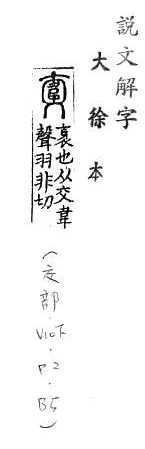 說文解字
大徐本
衺也从交韋
聲羽非切
(交部.V10下.P2.B5)